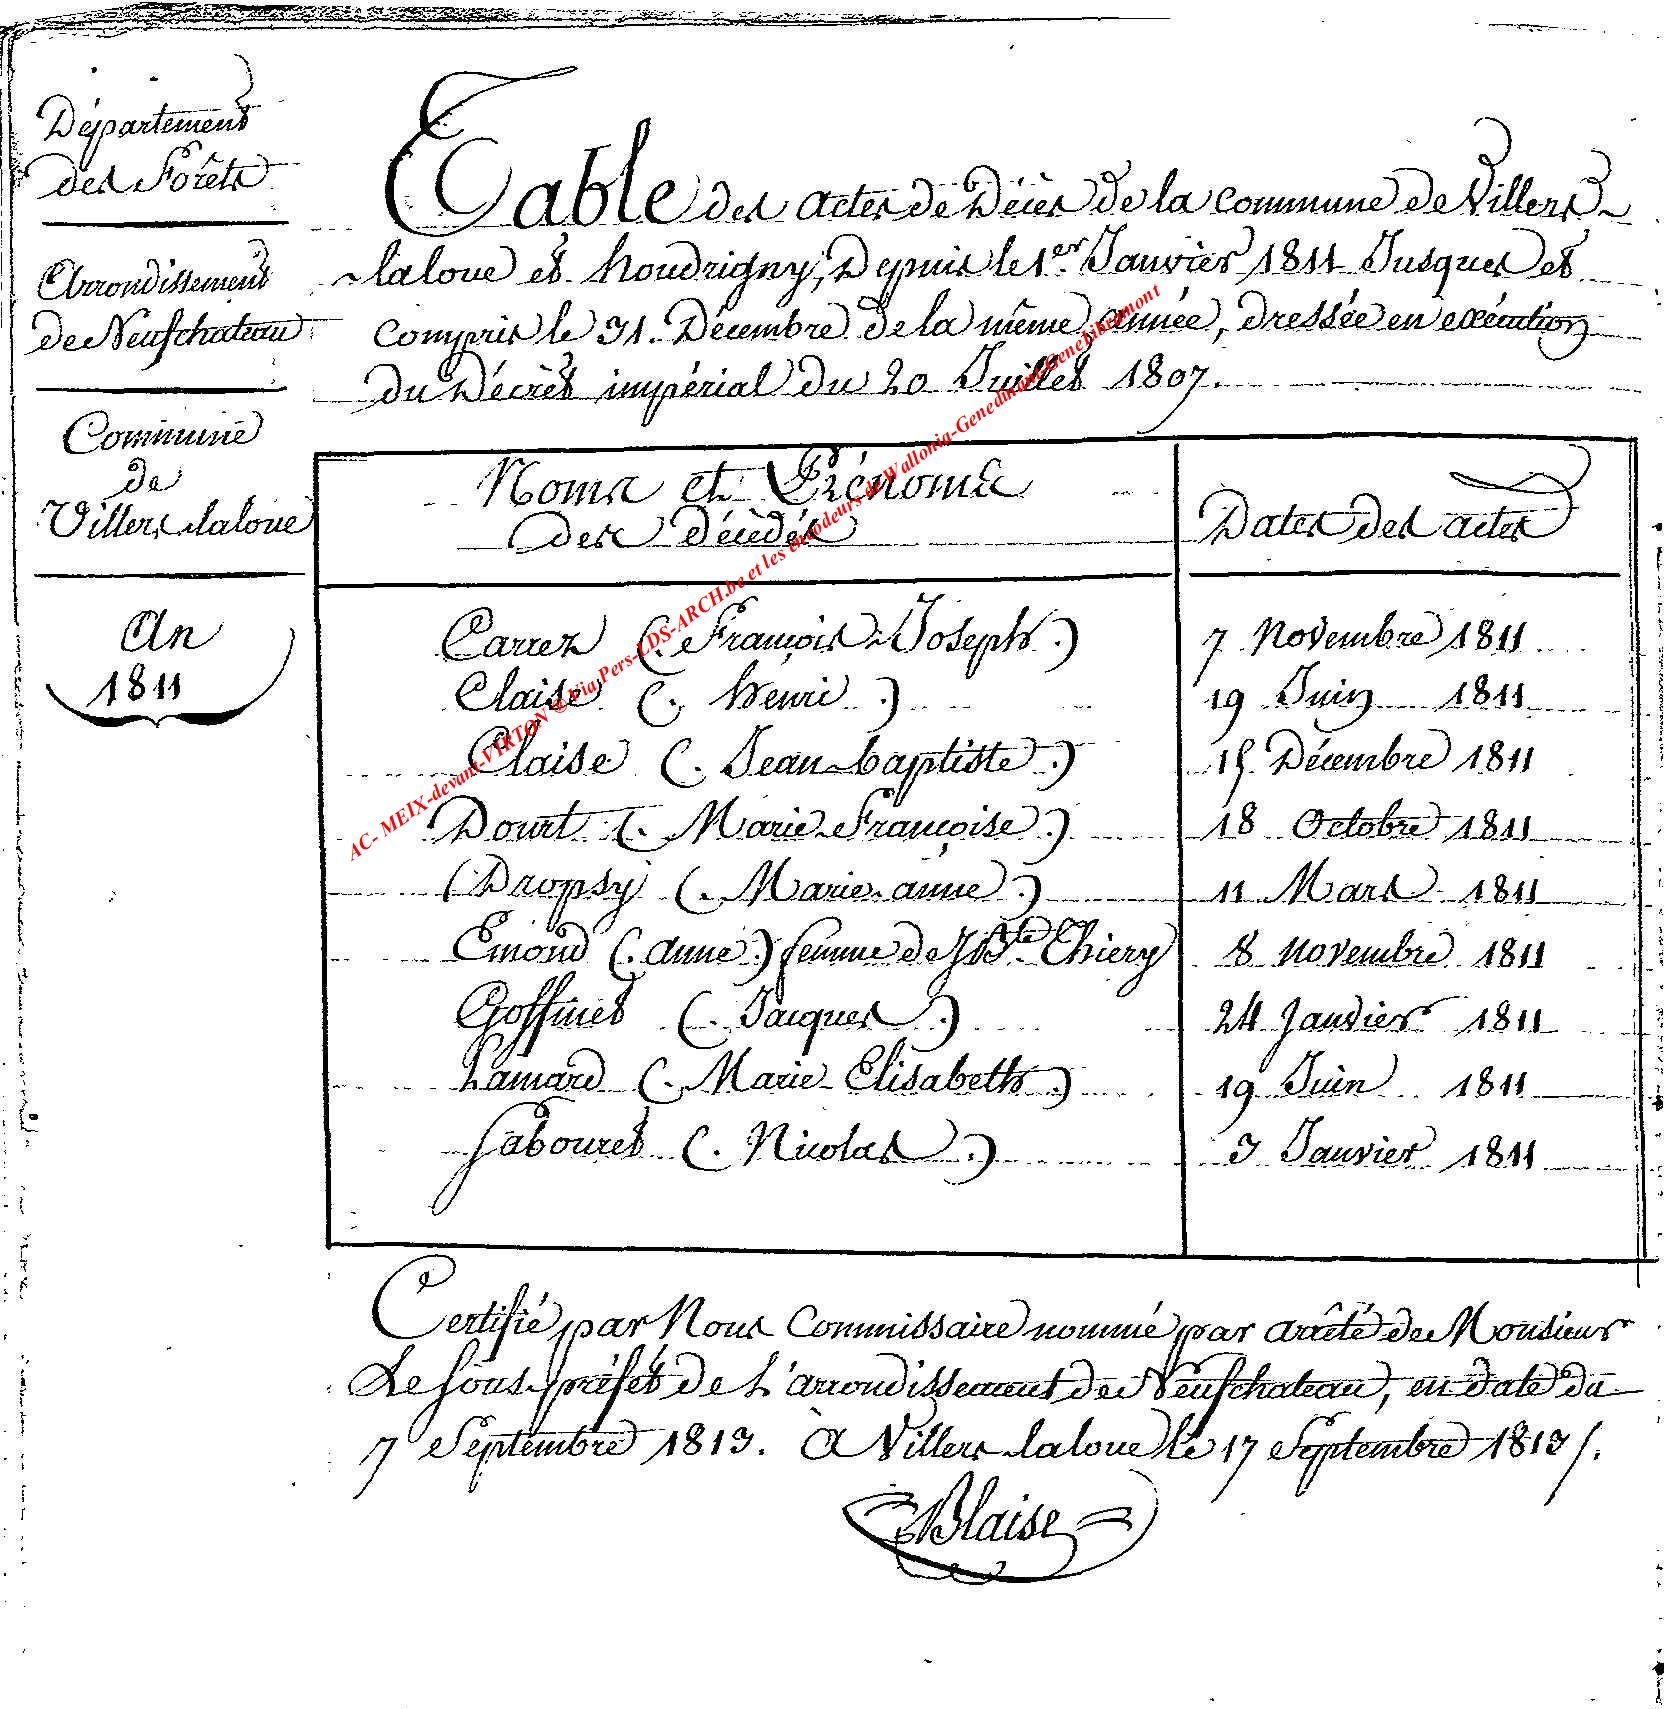 Département
des Forêts
Arrondissement
de Neufchateau
Commune
de
Villers-laloue
An
1811
Table des actes de Décès de la commune de Villers-
-laloue et houdrigny, Depuis le 1.er Janvier 1811 Jusques et
compris le 31. Décembre de la même année, dressée en exécution
du Décret impérial du 20 Juillet 1807.
Noms et Prénoms
des Décédés
Dates des actes
Carrez (. François-Joseph .) 7 Novembre 1811
Claise (. henri .) 19 Juin 1811
Claise (. Jean-baptiste .) 15 Décembre 1811
Dourt (. Marie-Françoise .) 18 Octobre 1811
Dropsy (. Marie-anne .) 11 Mars 1811
Emond (. anne .) femme de J Bte Thiery 8 novembre 1811
Goffinet (. Jacques .) 24 Janvier 1811
Lamard (. Marie-Elisabeth .) 19 Juin 1811
Sabouret (. Nicolas .) 3 Janvier 1811
Certifié par Nous Commissaire nommé par arrêté de Monsieur
Le Sous-préfet de L'arrondissement de Neufchateau, en date du
7 Septembre 1813. À Villers-laloue le 17 Septembre 1813.
Blaise
AC- MEIX-devant-VIRTON © via Pers-LDS-ARCH.be et les encodeurs de Wallonia-Genedinant-GeneLibramont